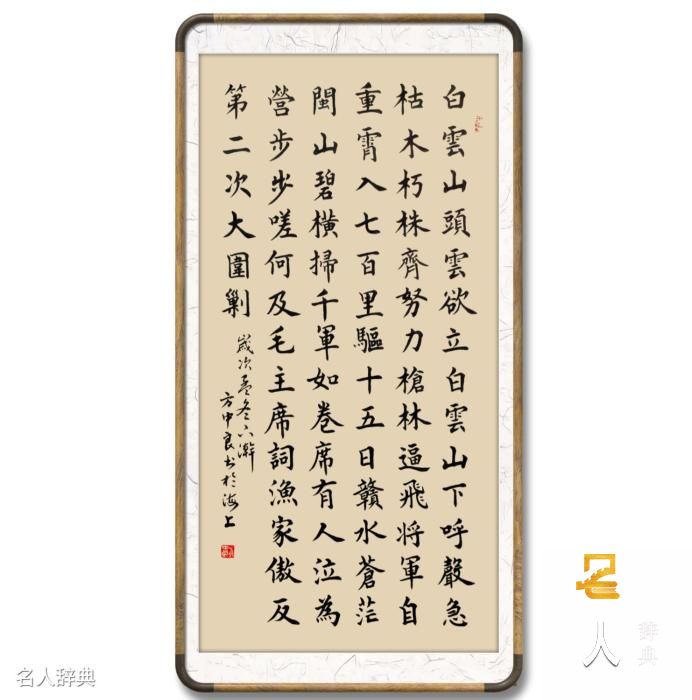 白雲山頭雲欲立白雲山下呼聲急
枯木朽株齊努力槍林逼飛將軍自
重霄入七百里驅十五日贛水蒼茫
閩山碧橫掃千軍如卷席有人泣為
營步步嗟何及毛主席詞漁家傲反
第二次大圍剿
歲次孟冬下澣
方中良书於海上
名人辞典
名人辞典